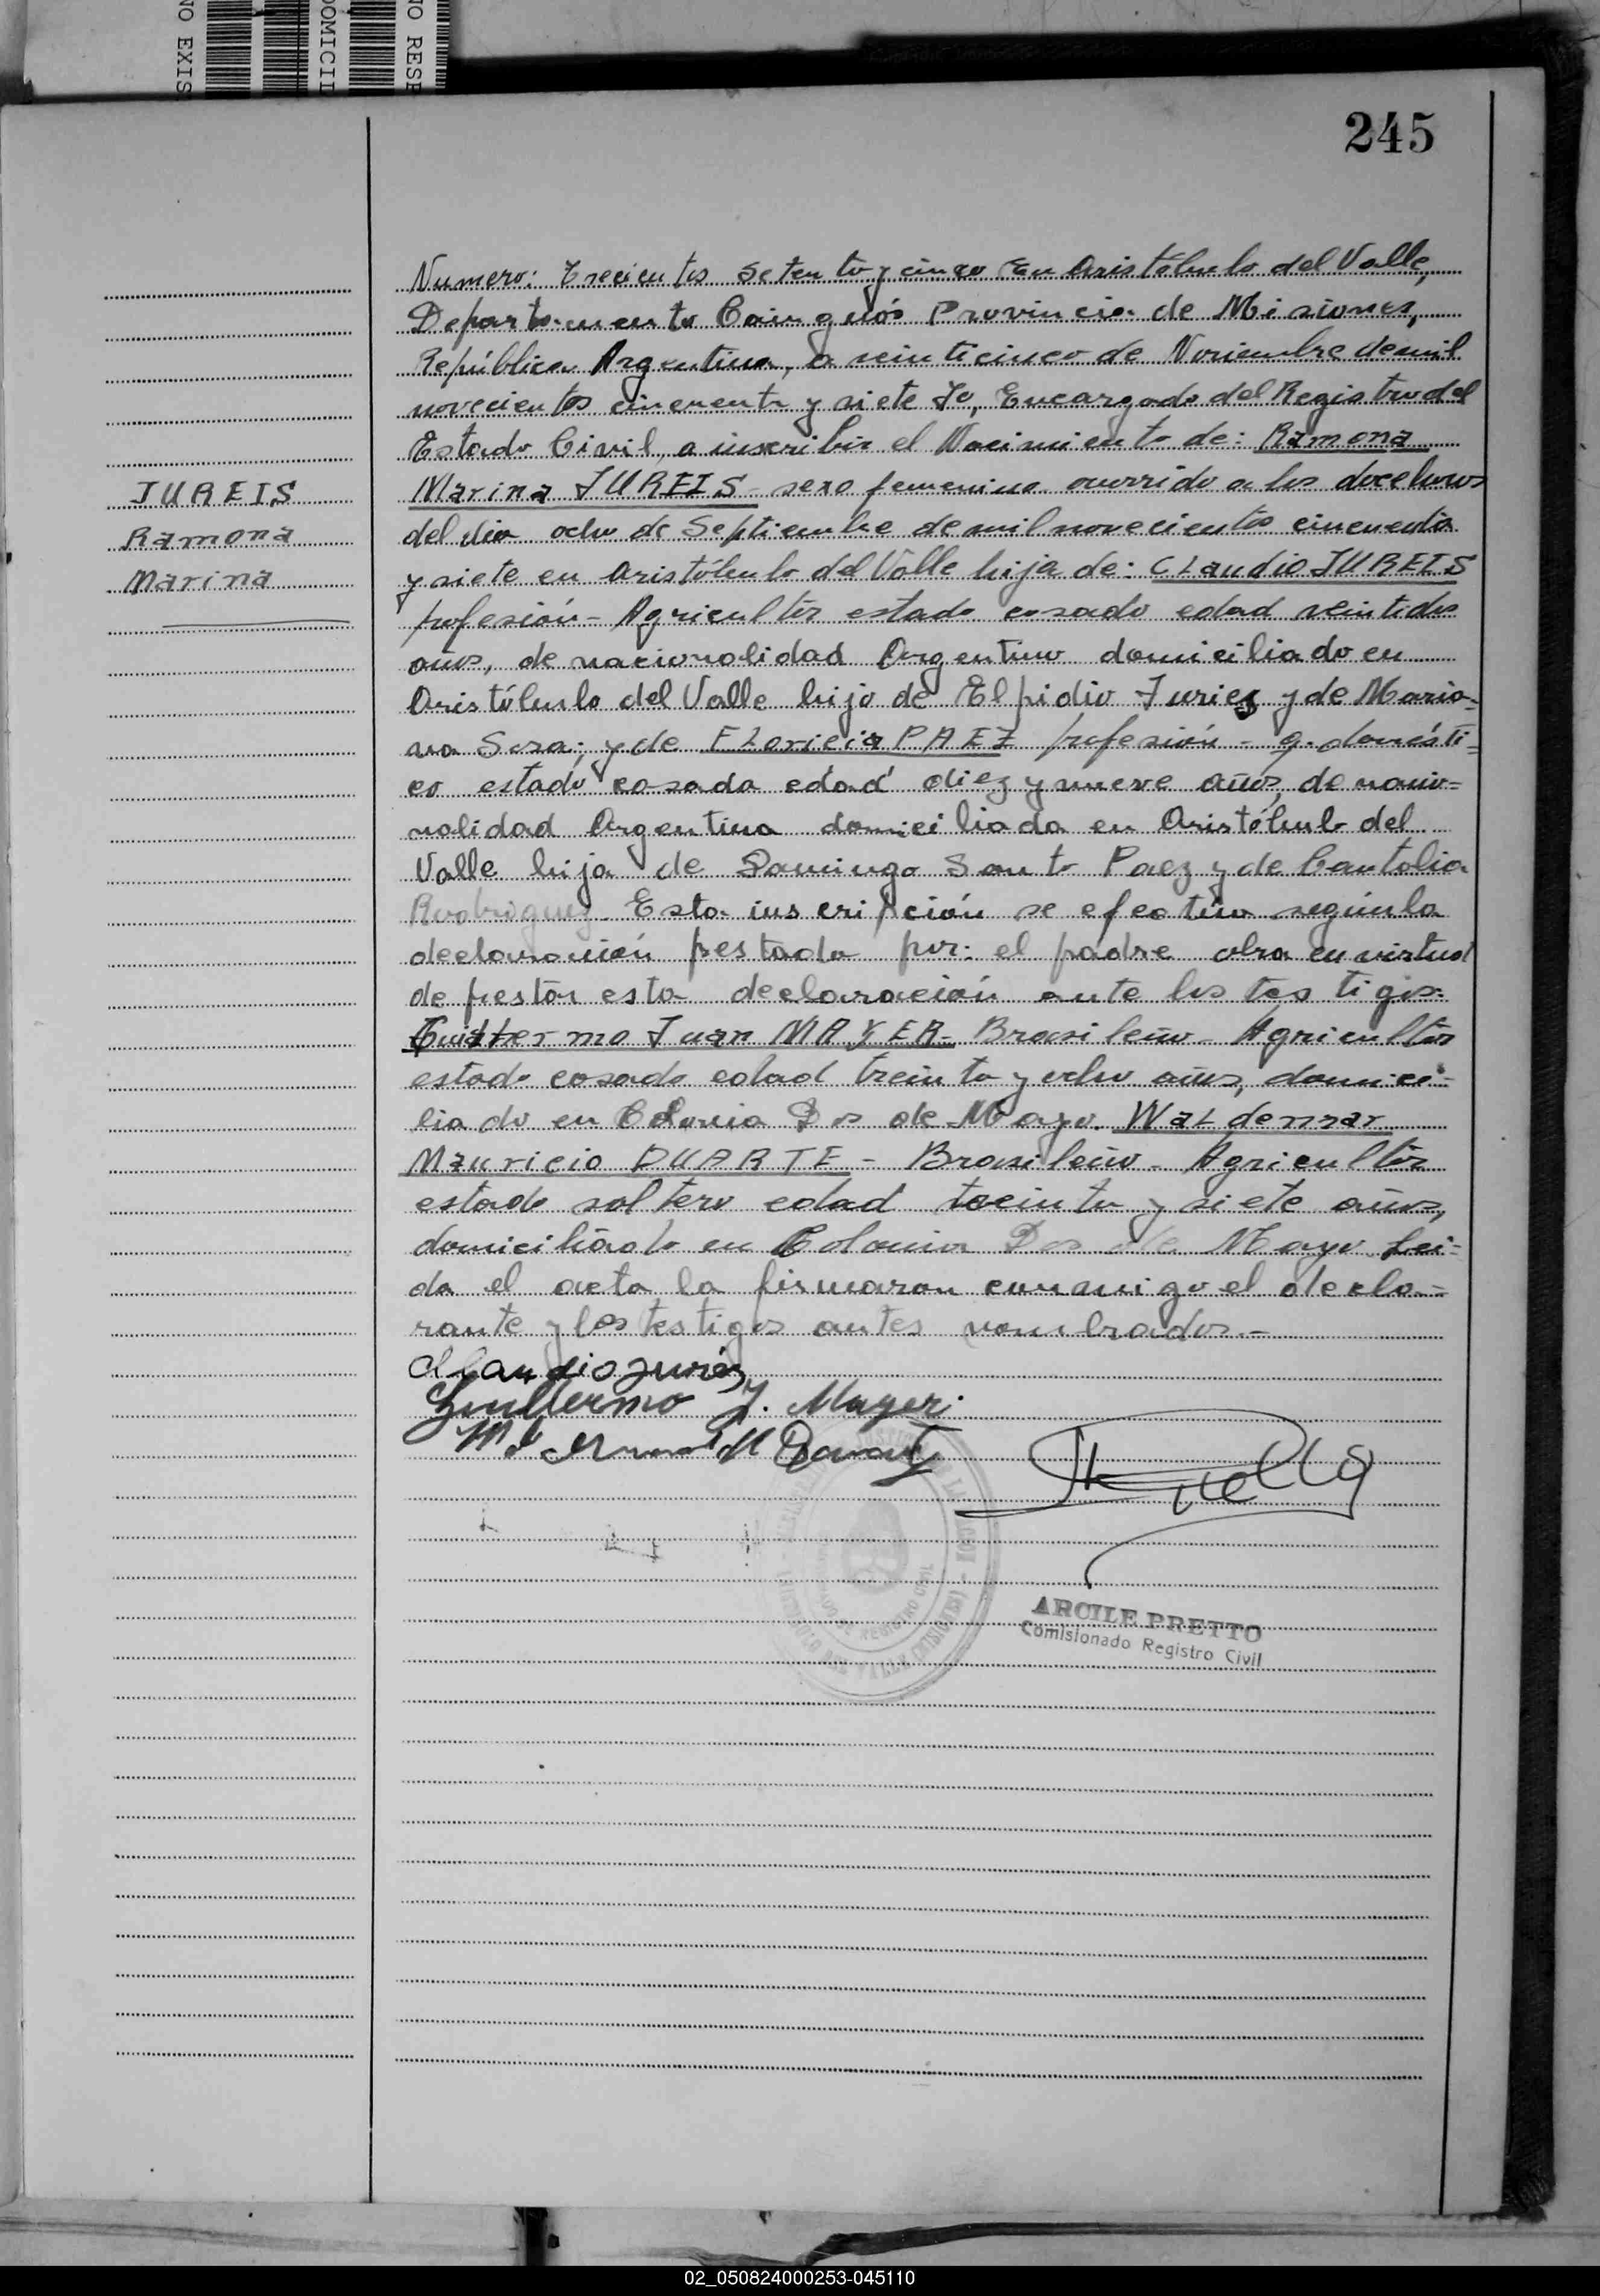 NO EXIS
DOMICIL
NO RESP
245
Numero: Trecientos setenta y cinco En Aristóbulo del Valle,
Departamento Cainguás Provincia de Misiones,
República Argentina, a veinticinco de Noviembre de mil
novecientos cincuenta y siete Yo, Encargado del Registro del
Estado Civil, a inscribir el Nacimiento de: Ramona
Marina JUREIS - sexo femenino ocurrido a las doce horas
del dia ocho de Septiembre de mil novecientos cincuenta
y siete en Aristóbulo del Valle hija de: CLaudio JUREIS
profesión - Agricultor estado casado edad veintidos
años, de nacionalidad Argentino domiciliado en
Aristóbulo del Valle hijo de Elpidio Juries y de Maria-
na Sosa; y de FLoricia PAEZ profesión - q. domésti=
co estado casada edad diez y nueve años, de nacio=
nalidad Argentina domiciliada en Aristóbulo del
Valle hija de Domingo Santo Paez y de Cantalia
Rodriguez. Esta inscripción se efectúa según la
declaración prestada por: el padre obra en virtud
de prestar esta declaración ante los testigos:
Guillermo Juan MAYER - Brasileño - Agricultor
estado casado edad treinta y ocho años, domici=
liado en Colonia Dos de Mayo. WaLdemar
Mauricio DUARTE - Brasileño - Agricultor
estado soltero edad treinta y siete años,
domiciliado en Colonia Dos de Mayo Lei=
da el acta la firmaron conmigo el decla=
rante y los testigos antes nombrados.-
JUREIS
Ramona
Marina
Claudio Jurés
Guillermo J. Mayer.
ARCILE PRETTO
Comisionado Registro Civil
02_050824000253-045110